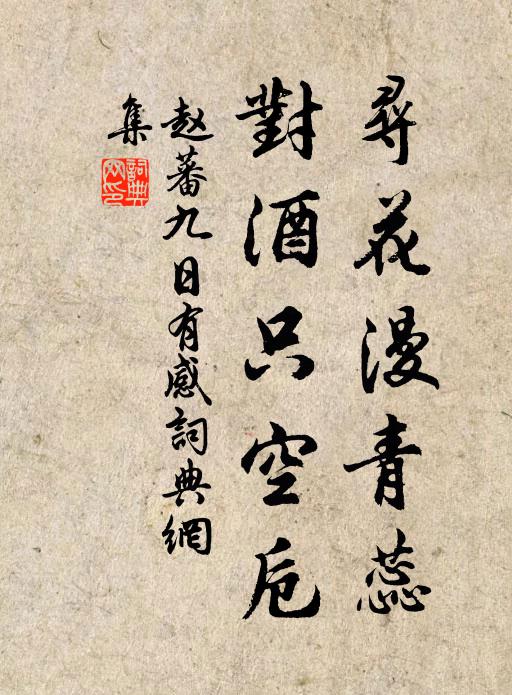 尋花漫青蕊
對酒只空卮
赵蕃九日有感詞典網
集
詞典网印